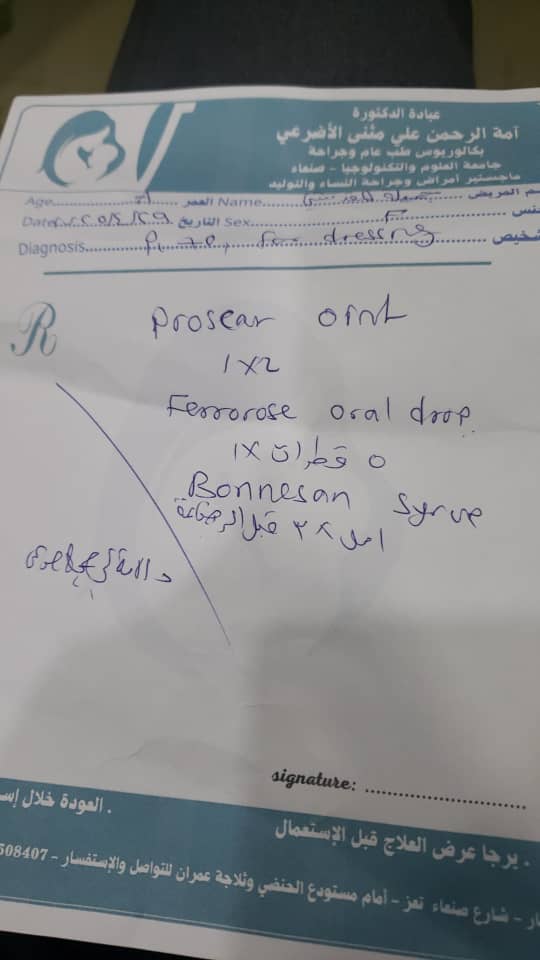 عيادة الدكتورة
آمة الرحمن علي مثنى الأضرعي
بكالوريوس طب عام وجراحة
جامعة العلوم والتكنولوجيا - صنعاء
ماجستير أمراض وجراحة النساء والتوليد
Age العمر Name سم المريض
Date التاريخ Sex F نس
Diagnosis dressing شخيص
R
Prosear oint
1 x 2
Ferrorose oral drop
٥ قطرات 1x
Bonnesan syrup
امل ٢x قبل الرضاعة
signature:
. العودة خلال إس
. يرجا عرض العلاج قبل الإستعمال
ار - شارع صنعاء تعز - أمام مستودع الحنضي وثلاجة عمران للتواصل والإستفسار - 508407